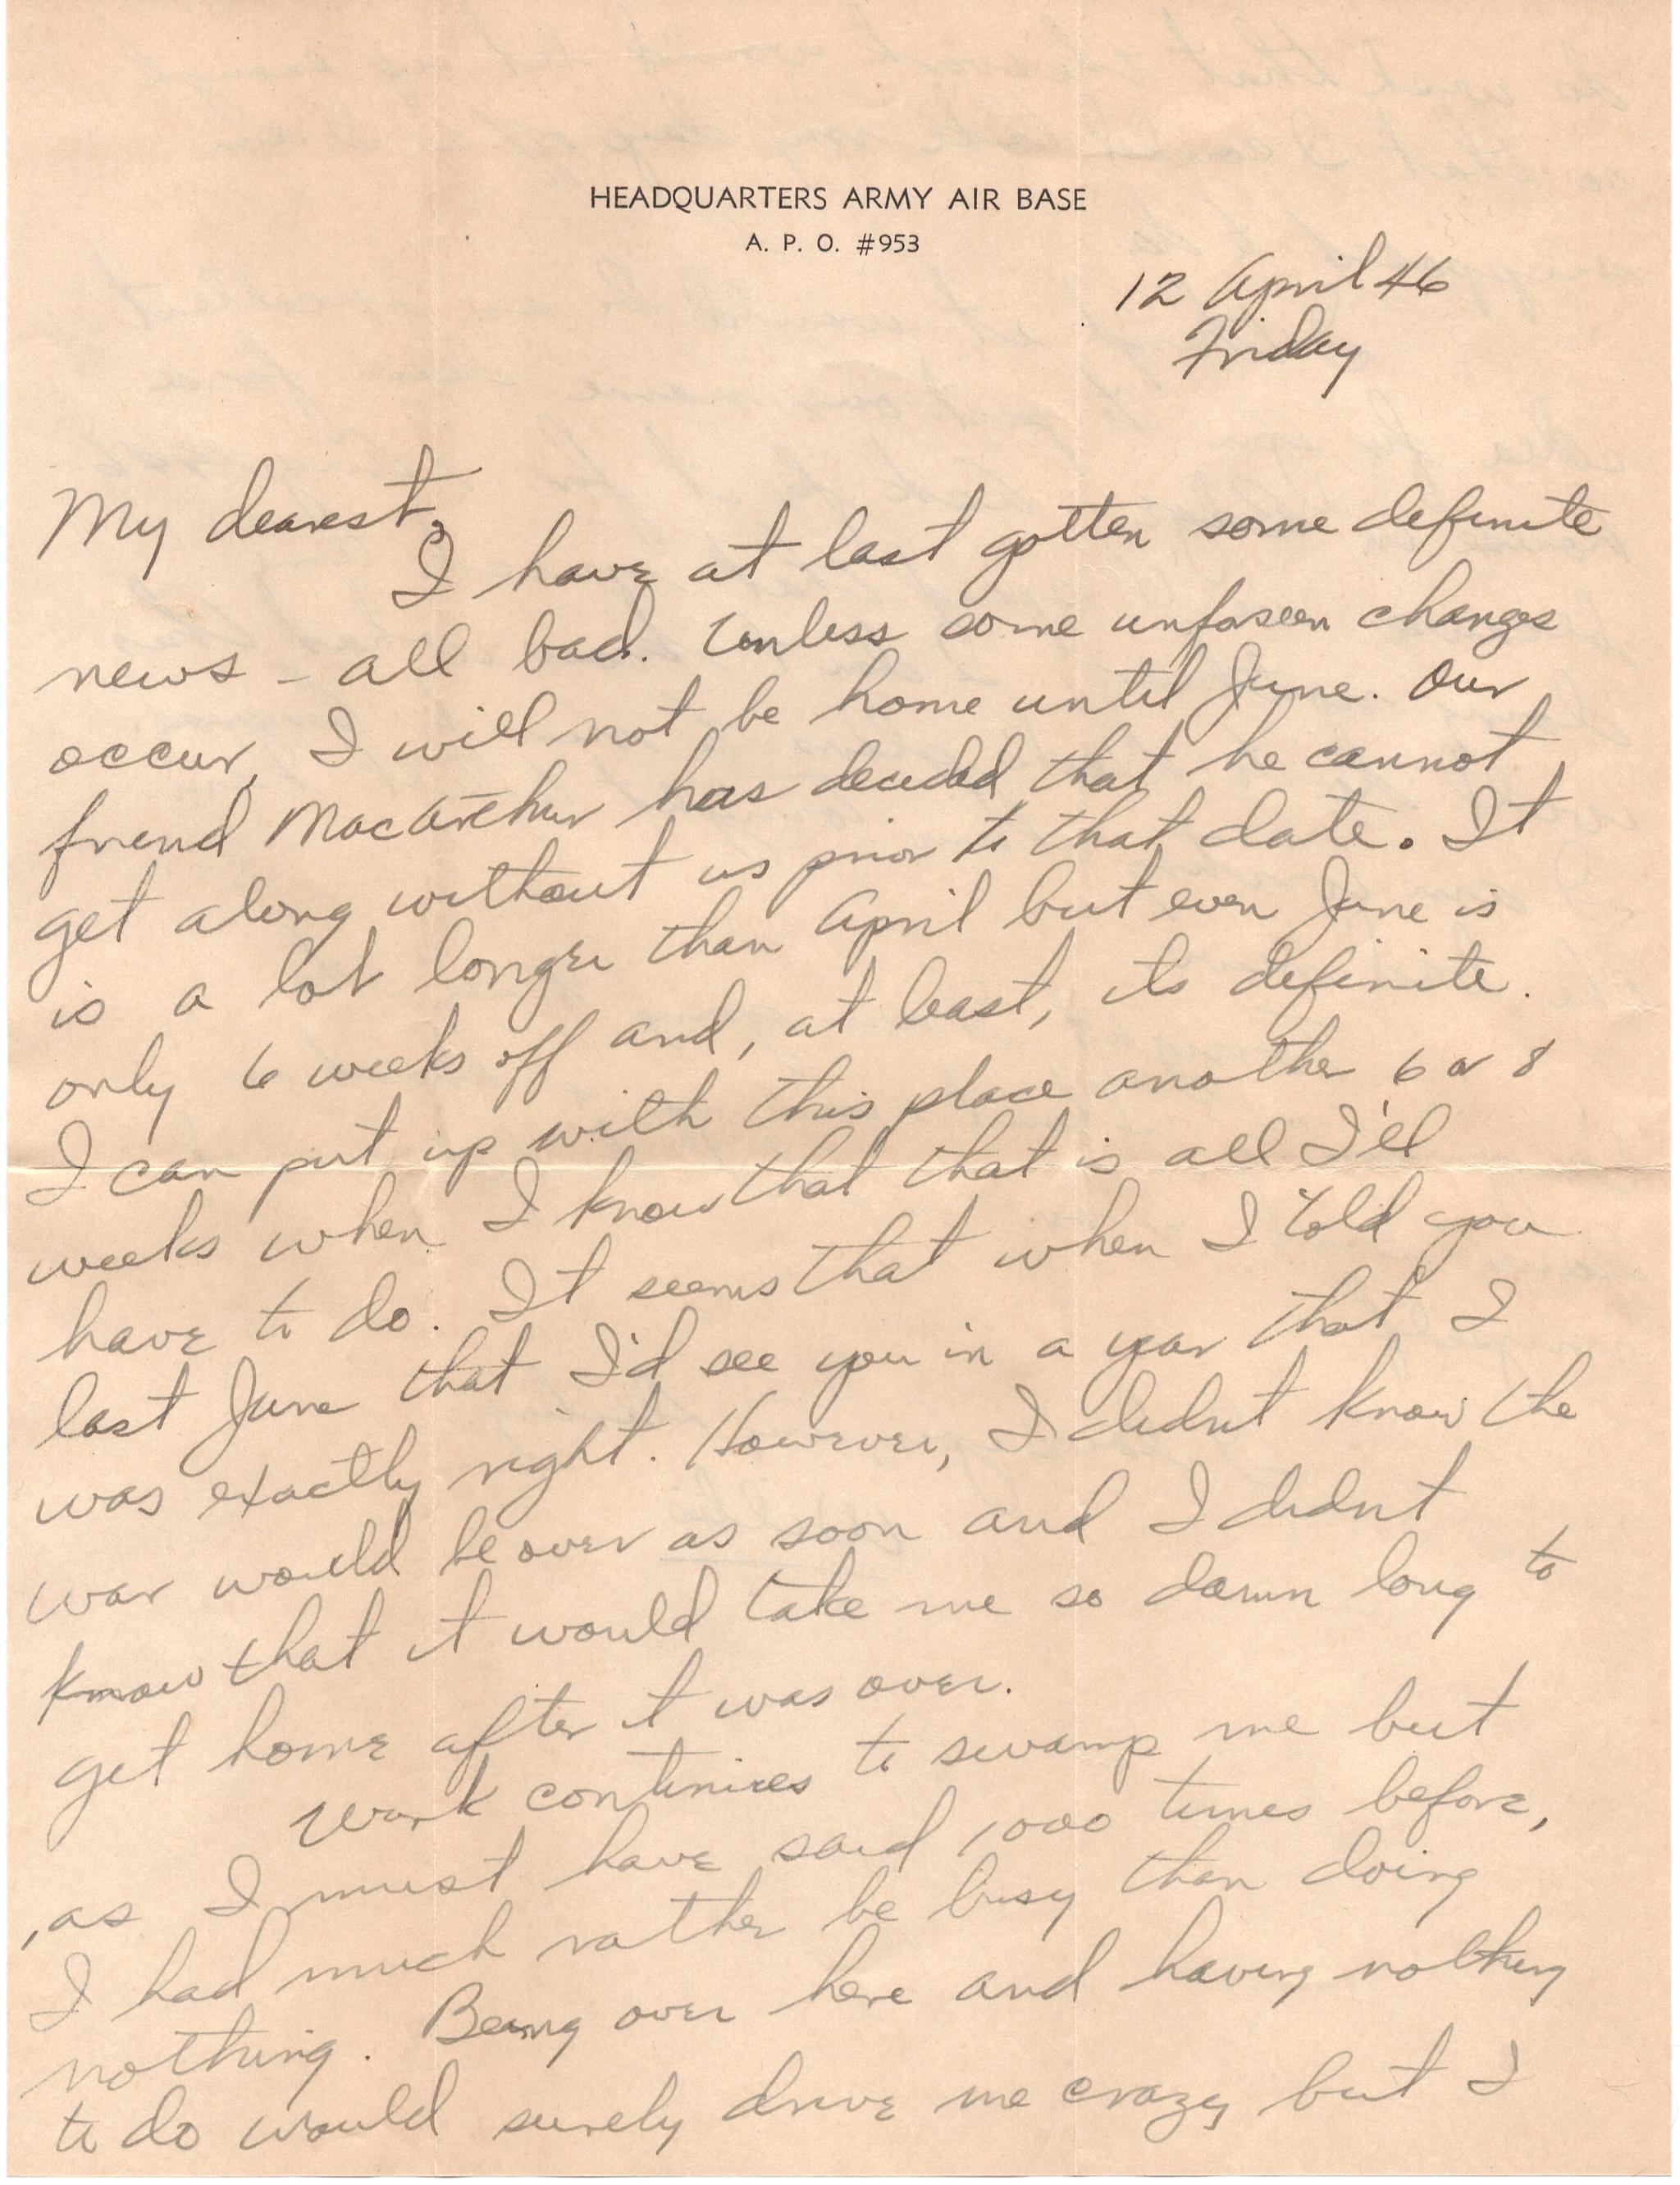 HEADQUARTERS ARMY AIR BASE
A. P. O. #953
12 April 46
Friday
My dearest,
I have at last gotten some definite
news - all bad. Unless some unforseen changes
occur, I will not be home until June. Our
friend MacArthur has decided that he cannot
get along without us prior to that date. It
is a lot longer than April but even June is
only 6 weeks off and, at least, its definite.
I can put up with this place another 6 or 8
weeks when I know that that is all I'll
have to do. It seems that when I told you
last June that I'd see you in a year that I
was exactly right. However, I didnt know the
war would be over as soon and I didnt
know that it would take me so damn long to
get home after it was over.
Work continues to swamp me but
, as I must have said 1000 times before,
I had much rather be busy than doing
nothing. Being over here and having nothing
to do would surely drive me crazy but I